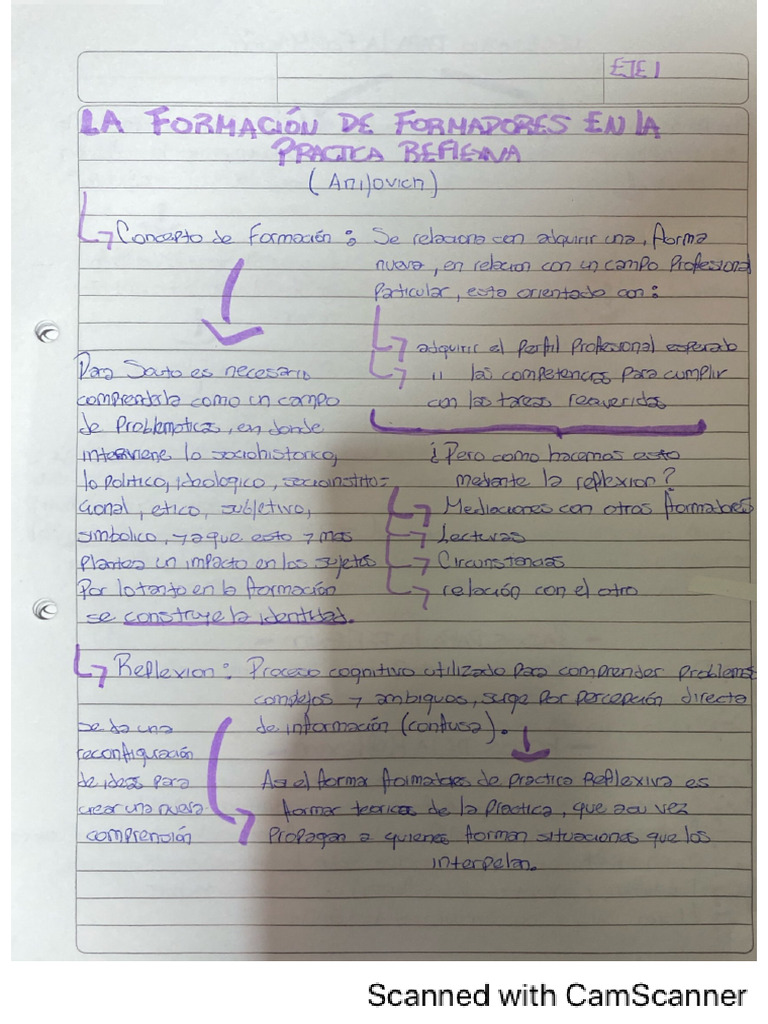 EJE 1
LA FORMACIÓN DE FORMADORES EN LA
PRACTICA REFLEXIVA
(Anijovich)
Concepto de Formación: Se relaciona con adquirir una, forma
nueva, en relacion con un campo Profesional
Particular, esta orientado con:
adquirir el Perfil Profesional esperado
" las competencias para cumplir
con las tareas requeridas
Para Souto es necesario
comprenderla como un campo
de Problematicas, en donde
interviene lo sociohistorico,
lo politico, ideologico, socioinstitu=
cional, etico, subjetivo,
simbolico, ya que esto y mas
plantea un impacto en los sujetos
Por lo tanto en la formación
se construye la identidad.
¿Pero como hacemos esto
mediante la reflexion?
Mediaciones con otros formadores
Lecturas
Circunstancias
relación con el otro
Reflexion: Proceso cognitivo utilizado para comprender problemas
complejos y ambiguos, surge por percepción directa
de información (confusa).
se da una
reconfiguración
de ideas para
crear una nueva
comprensión
As el forma formadores de practica Reflexiva es
formar teoricos de la practica, que a su vez
Propagan a quienes forman situaciones que los
interpelan.
Scanned with CamScanner